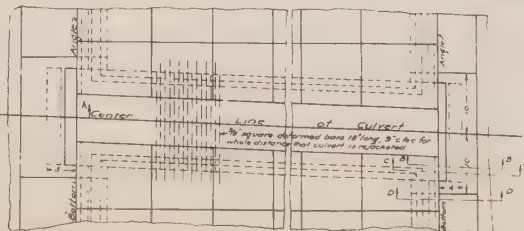 Angles
Angles
A
Center Line of Culvert
3/8" square deformed bars 18" long, 9" c to c for
whole distance that culvert is rejacketed
10
10
C
B
B
D
D
Bottom
Bottom